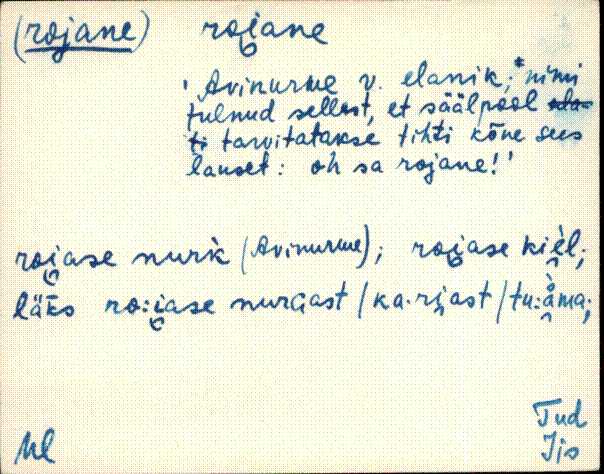 (rojane) roi̯ane
'Avinurme v. elanik; *nimi
tulnud sellest, et säälpool ala-
ti tarvitatakse tihti kõne sees
lauset: oh sa rojane!'
roi̯ase nurk (Avinurme); roi̯ase kiel;
läks ro:i̯ase nurGast / ka·rjast / tu:ama;
Ml
Tud
Iis